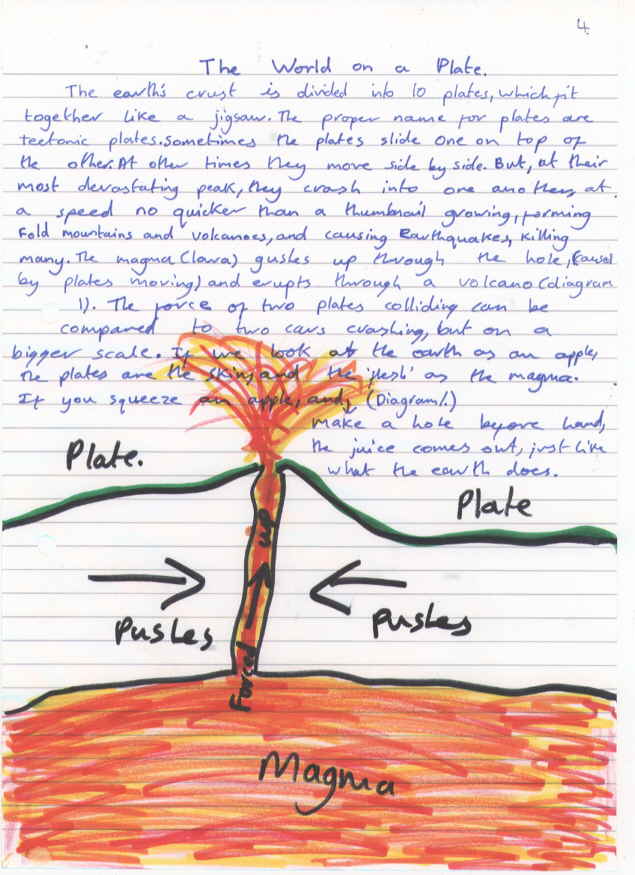 4.
The World on a Plate.
The earth's crust is divided into 10 plates, which fit
together like a jigsaw. The proper name for plates are
tectonic plates. Sometimes the plates slide one on top of
the other. At other times they move side by side. But, at their
most devastating peak, they crash into one another, at
a speed no quicker than a thumbnail growing, forming
Fold mountains and volcanoes, and causing Earthquakes, killing
many. The magma (lava) gushes up through the hole, (caused
by plates moving) and erupts through a volcano (diagram
1). The force of two plates colliding can be
compared to two cars crashing, but on a
bigger scale. If we look at the earth as an apple,
the plates are the skin, and the 'flesh' as the magma.
If you squeeze an apple, and, (Diagram 1.)
make a hole before hand,
the juice comes out, just like
what the earth does.
Plate.
Plate
Pushes
Pushes
Forced up
Magma